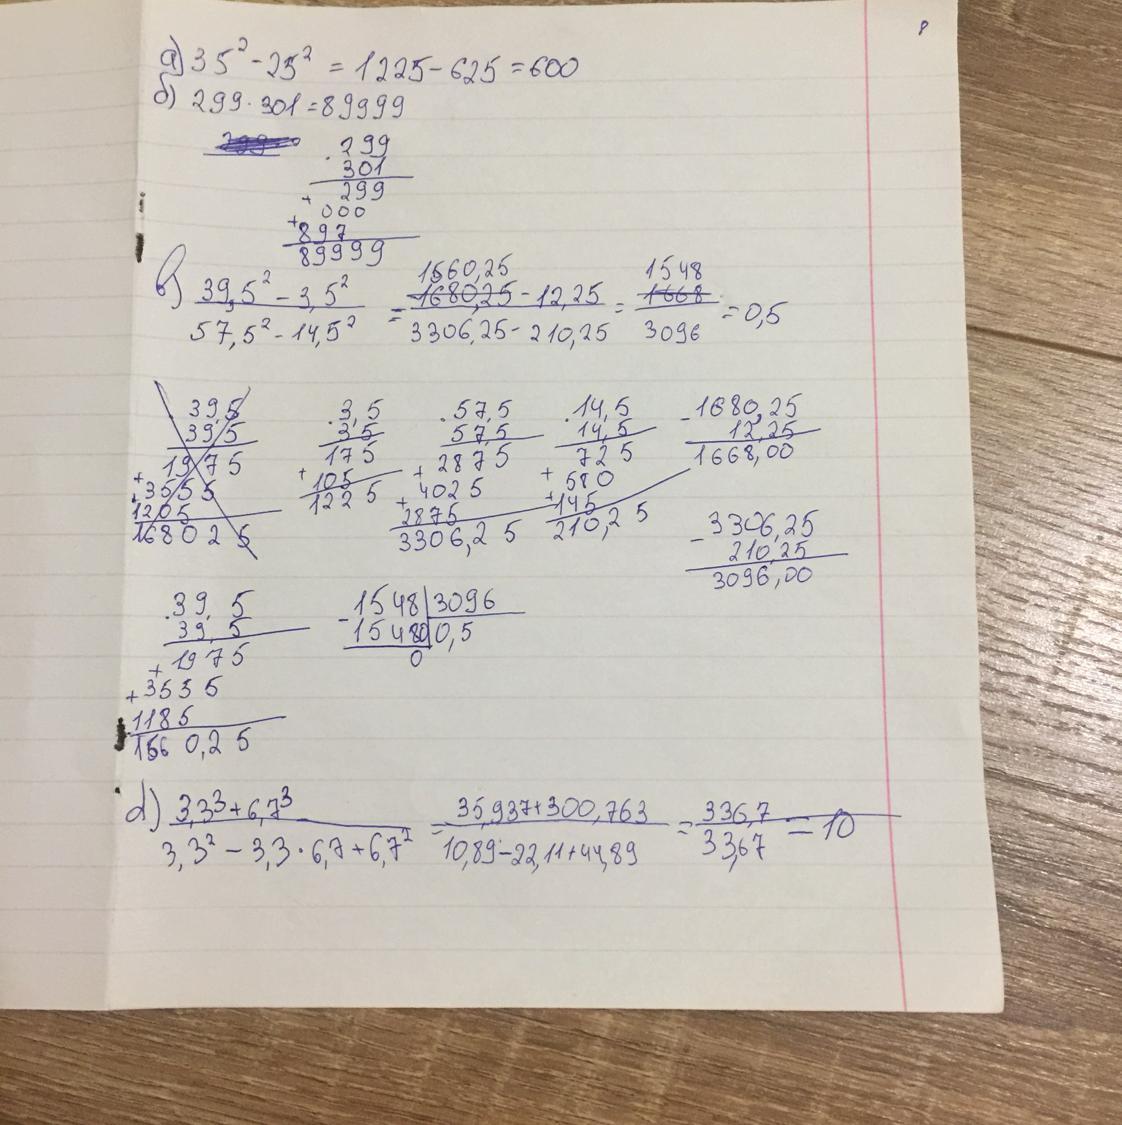 а) 35² - 25² = 1225 - 625 = 600
б) 299 · 301 = 89999
· 299
301
+ 299
000
+ 897
89999
1560,25
в) 39,5² - 3,5² / 57,5² - 14,5² = 1680,25 - 12,25 / 3306,25 - 210,25 = 1548 1668 / 3096 = 0,5
39,5
39,5
1975
+ 3555
+ 1205
168025
· 3,5
3,5
175
+ 105
1225
· 57,5
57,5
+ 2875
4025
+ 2875
3306,25
· 14,5
14,5
725
+ 580
+ 145
210,25
- 1680,25
12,25
1668,00
- 3306,25
210,25
3096,00
· 39,5
39,5
+ 1975
+ 3535
1185
1560,25
- 1548 | 3096
15480 | 0,5
0
d) 3,3³ + 6,7³ / 3,3² - 3,3 · 6,7 + 6,7² = 35,937 + 300,763 / 10,89 - 22,11 + 44,89 = 336,7 / 33,67 = 10